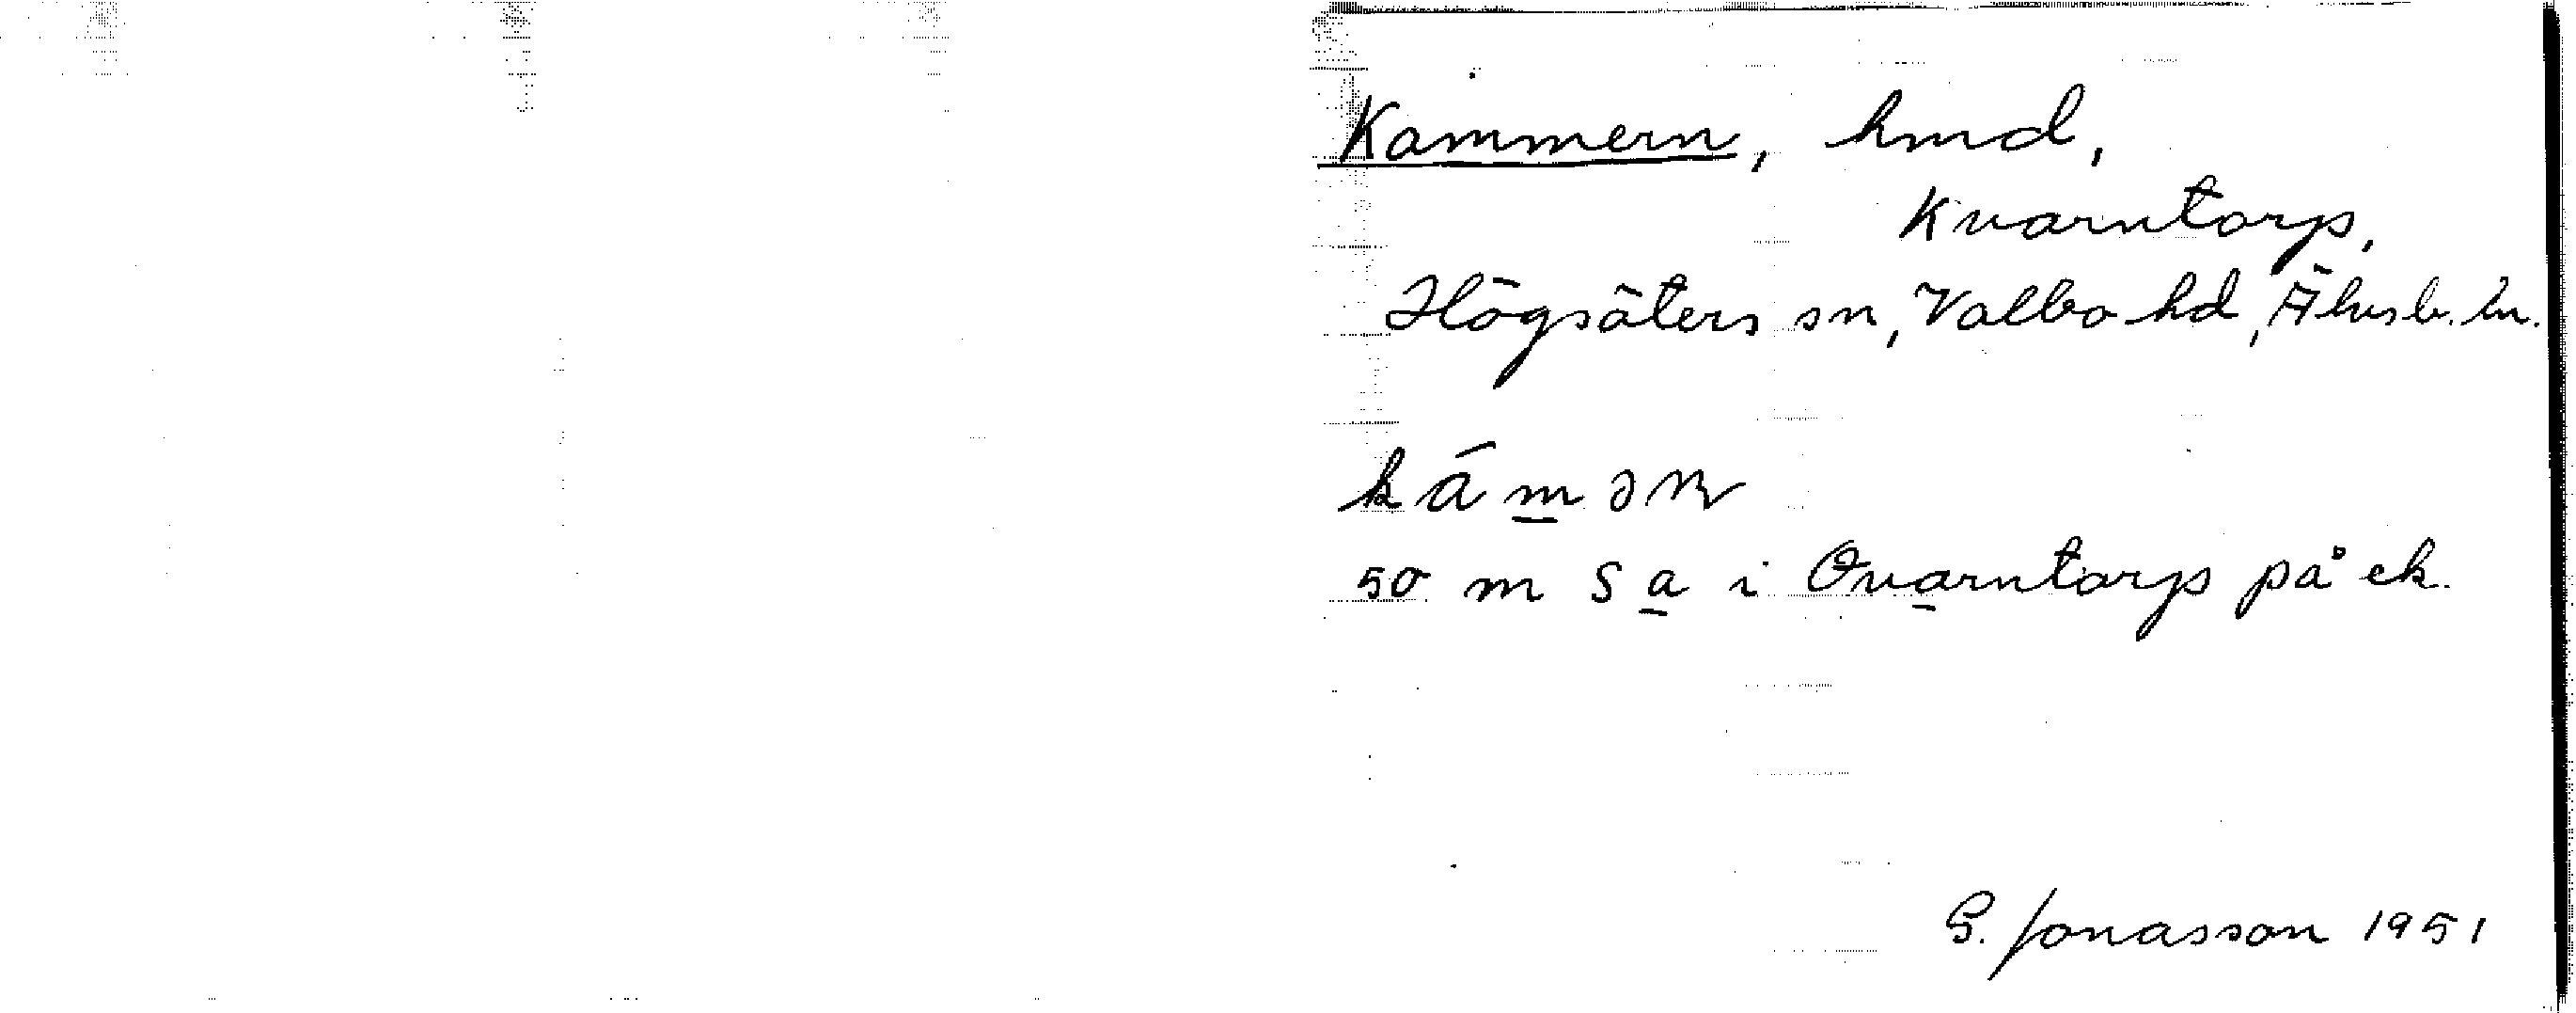 Kammern, hmd,
Kvarntorp,
Högsäters sn, Valbo hd, Älvsb. ln.
kámən
50 m S a i Qvarntorp på ek.
G. Jonasson 1951